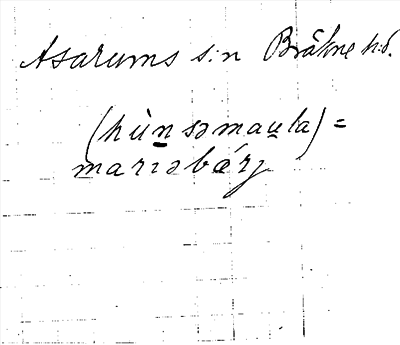 Asarums s:n Bräkne h:d.
(hùn səmaula) =
marıəbǽrȷ